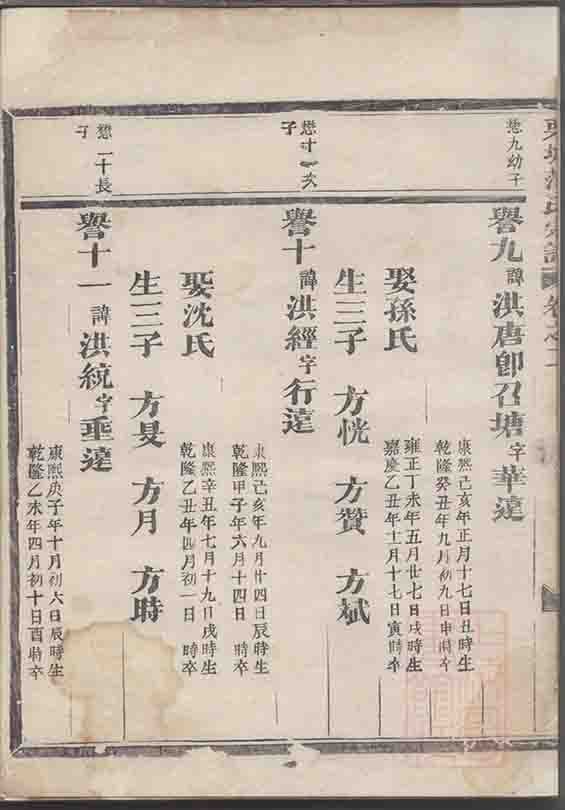 懋九幼子
譽九諱洪唐卽召塘字華達
康熙己亥年正月十七日丑時生
乾隆癸丑年九月初九日申時卒
娶孫氏
雍正丁未年五月廿七日戌時生
嘉慶乙丑年十一月十七日寅時卒
生三子 方恍 方贊 方斌
懋十一次子
譽十諱洪經字行達
康熙己亥年九月廿四日辰時生
乾隆甲子年六月十四日 時卒
娶沈氏
康熙辛丑年七月十九日戌時生
乾隆乙丑年四月初一日 時卒
生三子 方旻 方月 方時
懋二十長子
譽十一諱洪統字垂達
康熙庚子年十月初六日辰時生
乾隆乙未年四月初十日酉時卒